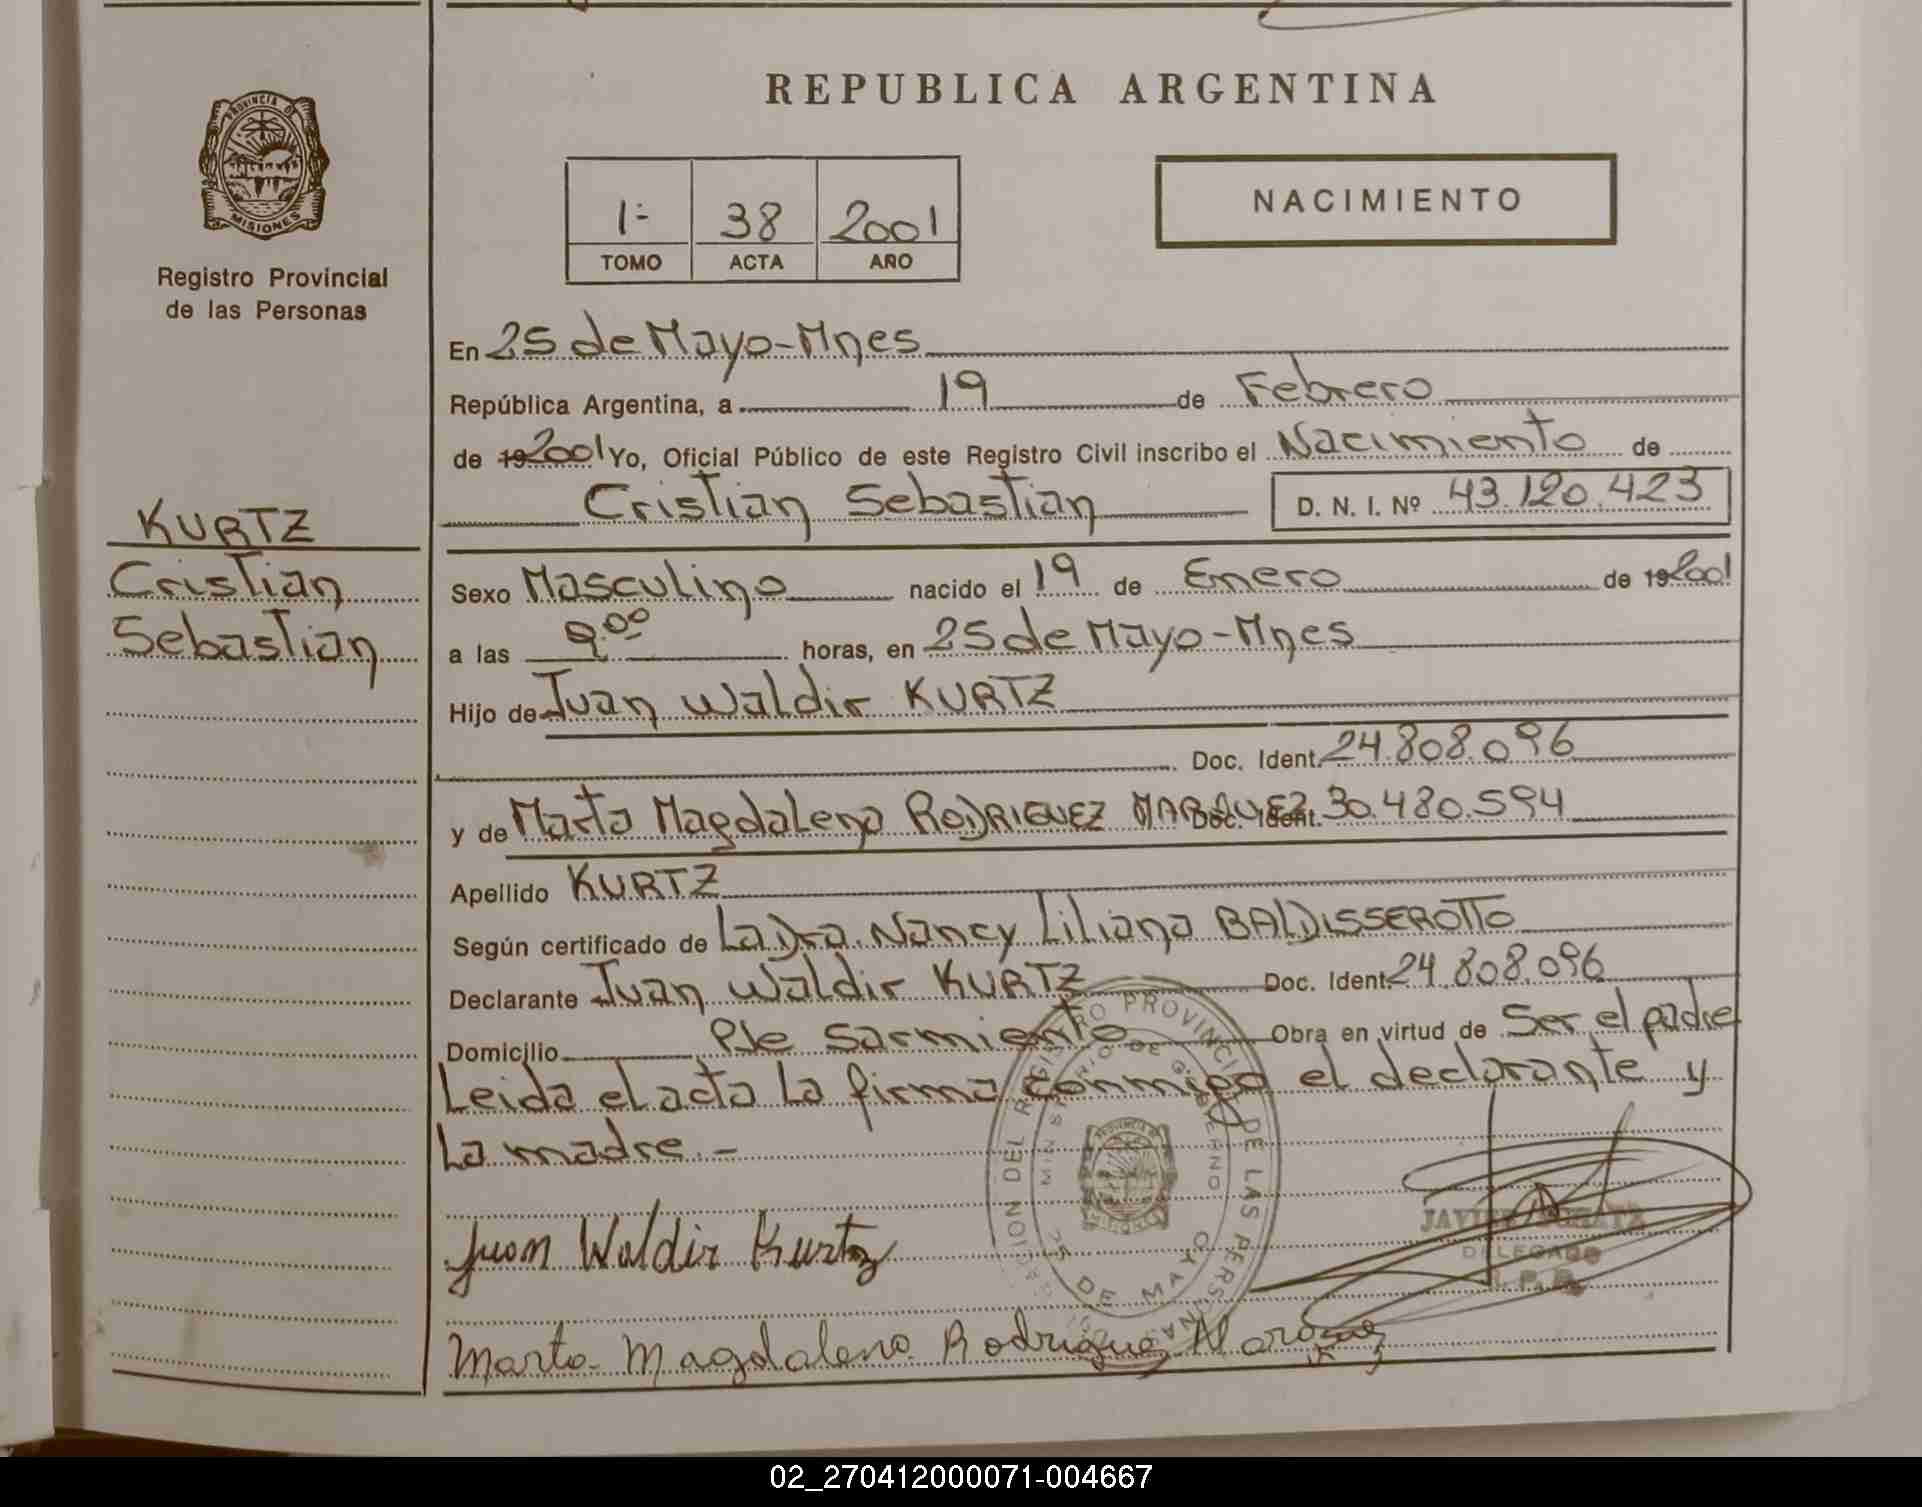 REPUBLICA ARGENTINA
PROVINCIA DE
MISIONES
Registro Provincial
de las Personas
1= 38 2001
TOMO ACTA AÑO
NACIMIENTO
En 25 de Mayo-Mnes
República Argentina, a 19 de Febrero
de 19 2001 Yo, Oficial Público de este Registro Civil inscribo el Nacimiento de
Cristian Sebastian D. N. I. Nº 43.120.423
KURTZ
Cristian
Sebastian
Sexo Masculino nacido el 19 de Enero de 19 2001
a las 9.00 horas, en 25 de Mayo-Mnes
Hijo de Juan Waldir KURTZ
Doc. Ident. 24.808.096
y de Marta Magdalena RODRIGUEZ MARQUEZ Doc. Ident. 30.480.594
Apellido KURTZ
Según certificado de La Dra. Nancy Liliana BALDISSEROTTO
Declarante Juan Waldir KURTZ Doc. Ident. 24.808.096
Domicilio Pje Sarmiento Obra en virtud de Ser el padre
Leida el acta La firma conmigo el declarante y
La madre.-
DEL REGISTRO PROVINCIAL DE LAS PERSONAS
MINISTERIO DE GOBIERNO
25 DE MAYO
Juan Waldir Kurtz
JAVIER
DELEGADO
R. P. P.
Marta Magdalena Rodriguez Marquez
02_270412000071-004667